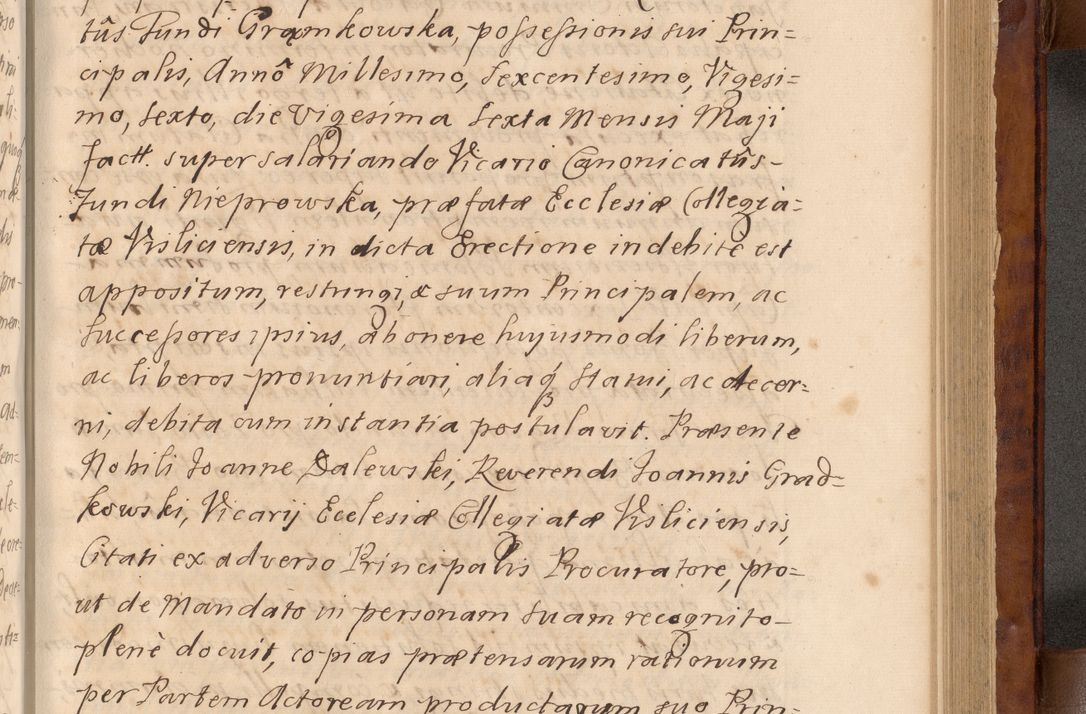 tûs Fundi Gromkowska, possessionis sui Prin=
cipalis, Annô Millesimo, Sexcentesimo, Vigesi=
mo, Sexto, die Vigesima Sexta Mensis Maji
fact. super salariando Vicario Canonicatûs-
Fundi Nieprowska, præfatæ Ecclesiæ Collegia=
tæ Visliciensis, in dicta Erectione indebitè est
appositum, restringi, & suum Principalem, ac
Successores ipsius, ab onere hujusmodi liberum,
ac liberos pronuntiari, aliaq; Statui, ac decer=
ni, debita cum instantia postulavit. Præsente
Nobili Joanne Dalewski, Reverendi Joannis Grad=
kowski, Vicarij Ecclesiæ Collegiatæ Visliciensis,
Citati ex adverso Principalis Procuratore, pro=
ut de Mandato in personam suam recognito-
plenè docuit, copias prætensarum rationum
per Partem Actoream productarum suo Prin-